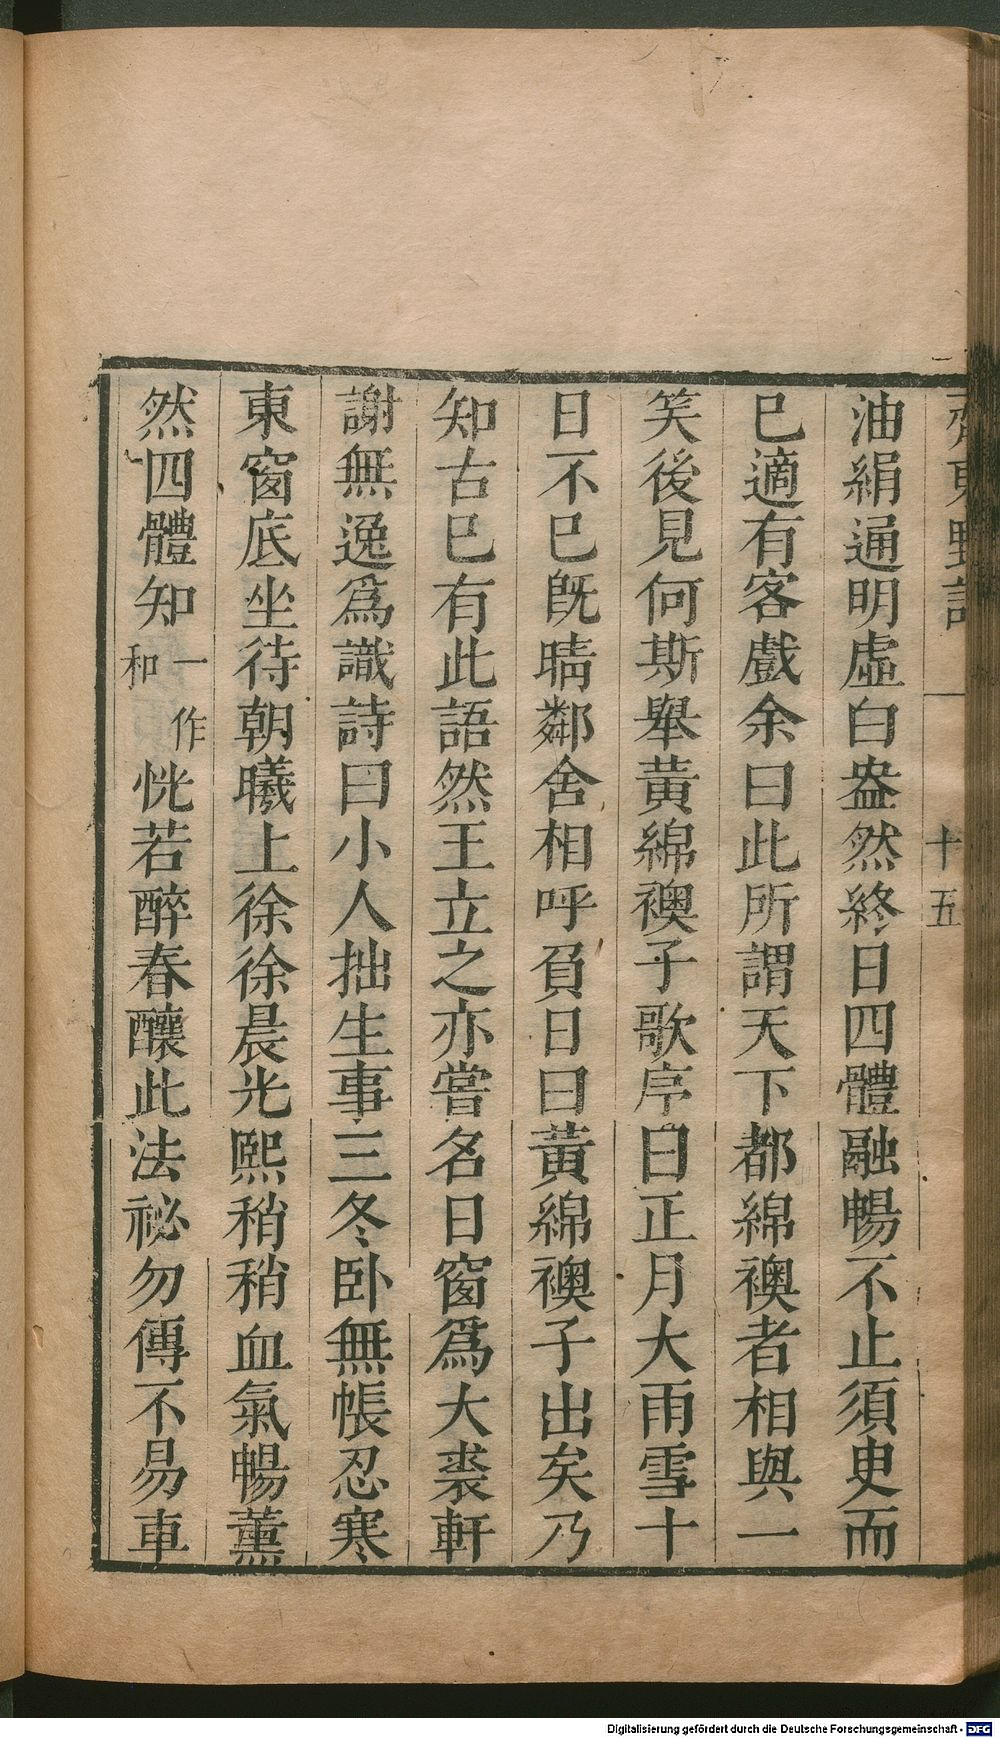 齊東野語
十五
油絹通明虛白盎然終日四體融暢不止須臾而
已適有客戲余曰此所謂天下都綿襖者相與一
笑後見何斯舉黃綿襖子歌序曰正月大雨雪十
日不已旣晴鄰舍相呼負日曰黃綿襖子出矣乃
知古已有此語然王立之亦嘗名日窗爲大裘軒
謝無逸爲識詩曰小人拙生事三冬卧無帳忍寒
東窗底坐待朝曦上徐徐晨光熙稍稍血氣暢薰
然四體知一作和恍若醉春釀此法祕勿傳不易車
Digitalisierung gefördert durch die Deutsche Forschungsgemeinschaft - DFG